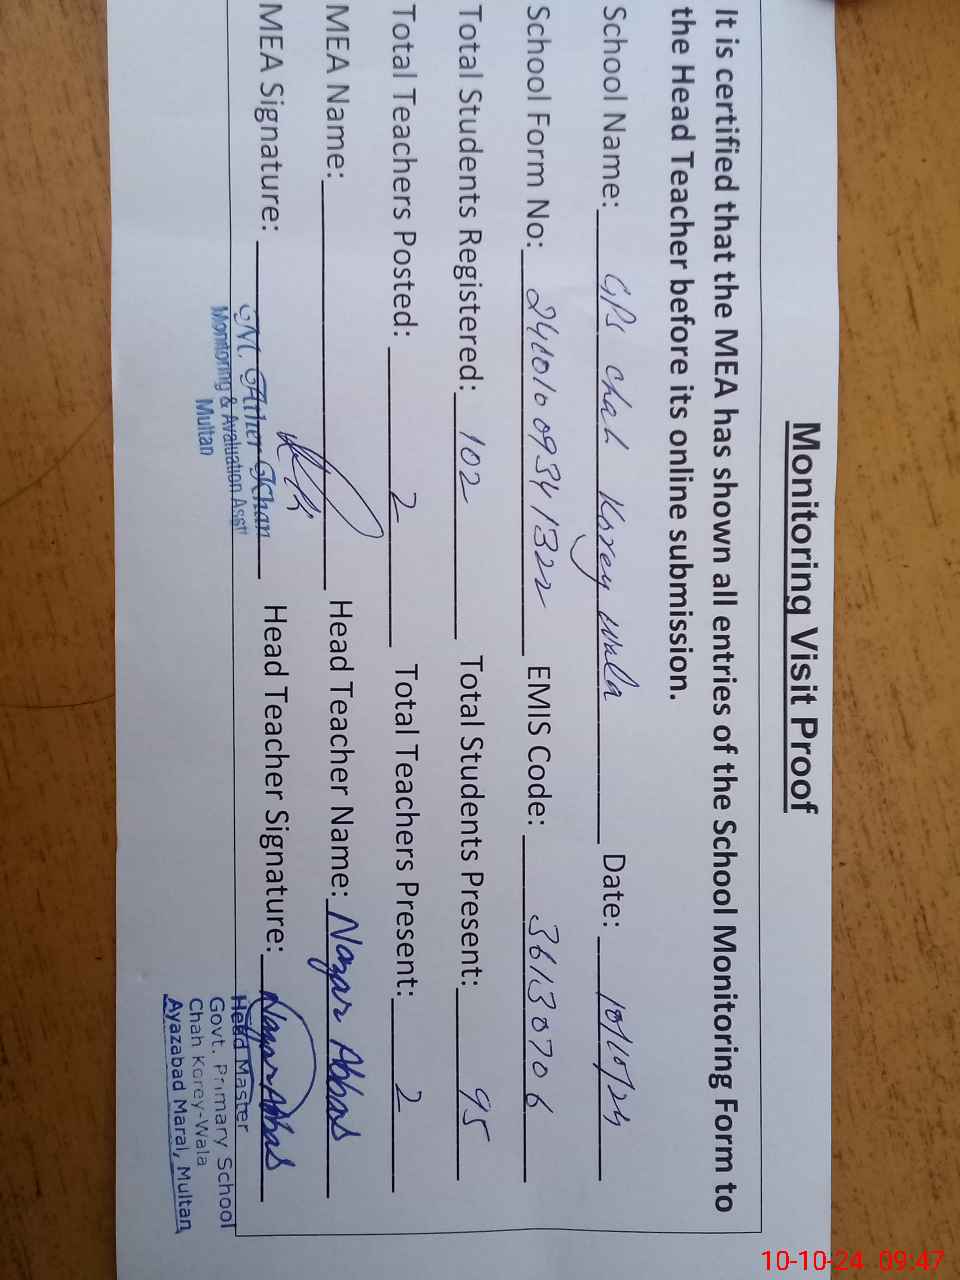 Monitoring Visit Proof
It is certified that the MEA has shown all entries of the School Monitoring Form to
the Head Teacher before its online submission.
School Name: GPS Chah Korey wala Date: 10/10/24
School Form No: 24101009341322 EMIS Code: 36130706
Total Students Registered: 102 Total Students Present: 95
Total Teachers Posted: 2 Total Teachers Present: 2
MEA Name: Head Teacher Name: Nazar Abbas
MEA Signature: Head Teacher Signature: Nazar Abbas
M. Ather Khan
Monitoring & Avaluation Asstt
Multan
Head Master
Govt. Primary School
Chah Korey-Wala
Ayazabad Maral, Multan
10-10-24 09:47